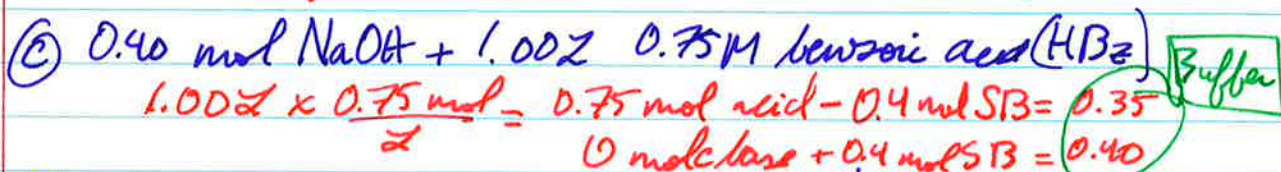 ⓒ 0.40 mol NaOH + 1.00L 0.75M benzoic acid (HBz) Buffer
1.00L x 0.75 mol/L = 0.75 mol acid - 0.4 mol SB = 0.35
0 mol c base + 0.4 mol SB = 0.40